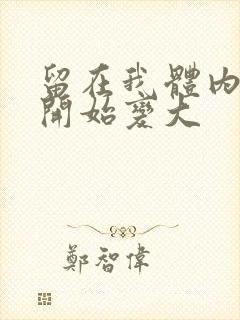 留在我體內
開始變大
鄭智偉